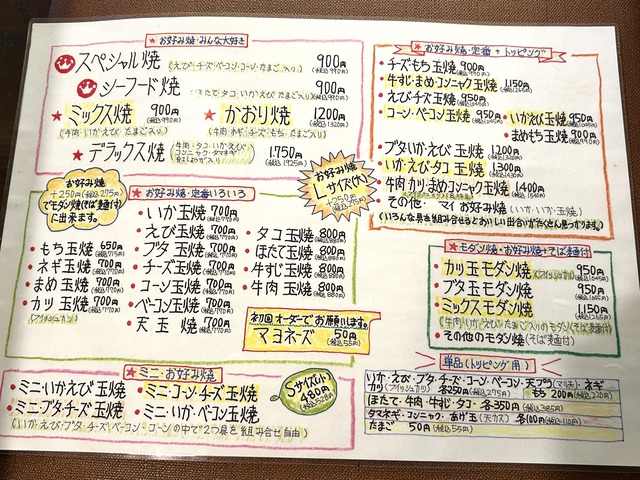 ★お好み焼・みんな大好き
スペシャル焼 (えび・チーズ・ベーコン・コーン・たまご入り) 900円 (税込990円)
シーフード焼 (ほたて・タコ・いか・えび・たまご入り) 900円 (税込990円)
★ミックス焼 900円 (税込990円)
(牛肉・いか・えび・たまご入り)
★かおり焼 1200円 (税込1320円)
(牛肉・ネギ・チーズ・もち・たまご入り)
★デラックス焼 1.750円 (税込1925円)
お好み焼
+250円(税込275円)
でモダン焼(そば麺付)
に出来ます。
お好み焼
Lサイズ(大)
+250円
★お好み焼・定番いろいろ
・もち玉焼 650円 (税込715円)
・ネギ玉焼 700円 (税込770円)
・まめ玉焼 700円 (税込770円)
・カッ玉焼 700円 (税込770円)
(フィッシュカツ)
・いか玉焼 700円 (税込770円)
・えび玉焼 700円 (税込770円)
・ブタ玉焼 700円 (税込770円)
・チーズ玉焼 700円 (税込770円)
・コーン玉焼 700円 (税込770円)
・ベーコン玉焼 700円 (税込770円)
・天玉焼 700円 (税込770円)
・タコ玉焼 800円 (税込880円)
・ほたて玉焼 800円 (税込880円)
・牛すじ玉焼 800円 (税込880円)
・牛肉玉焼 800円 (税込880円)
初回オーダーでお願いします。
マヨネーズ 50円 (税込55円)
★ミニ・お好み焼
・ミニ・いかえび玉焼
・ミニ・ブタチーズ玉焼
・ミニ・コーン・チーズ玉焼
・ミニ・いか・ベーコン玉焼
(いか・えび・ブタ・チーズ・ベーコン・コーンの中で2つ具を組み合せ自由)
Sサイズ(小)
480円
(税込528円)
★お好み焼・定番+トッピング
・チーズもち玉焼 900円 (税込990円)
・牛すじ・まめ・コンニャク玉焼 1,150円 (税込1265円)
・えび・チーズ玉焼 950円 (税込1045円)
・コーン・ベーコン玉焼 950円 (税込1045円)
・いかえび玉焼 950円 (税込1045円)
・まめもち玉焼 900円 (税込990円)
・ブタ・いか・えび玉焼 1200円 (税込1320円)
・いか・えび・タコ玉焼 1300円 (税込1430円)
・牛肉・カリ・まめ・コンニャク玉焼 1400円 (税込1540円)
・その他・マイお好み焼 (いか・いか・玉焼)
(いろんな具を組み合せるとおいしい出合いがたくさん見つかります。)
★モダン焼・お好み焼+そば麺付
・カッ玉モダン焼 (フィッシュカツ) 950円 (税込1045円)
・ブタ玉モダン焼 950円 (税込1045円)
・ミックスモダン焼 1,150円 (税込1265円)
(牛肉・いか・えび・たまご入りのモダン(そば麺付)
・その他のモダン焼 (そば麺付)
単品(トッピング用)
いか・えび・ブタ・チーズ・コーン・ベーコン・天プラ(マル天)・ネギ
カツ(フィッシュカツ) 各250円(税込275円) もち 200円(税込220円)
ほたて・牛肉・牛すじ・タコ・各350円(税込385円)
タマネギ・コンニャク・あげ玉(天カス) 各100円(税込110円)
たまご 50円(税込55円)